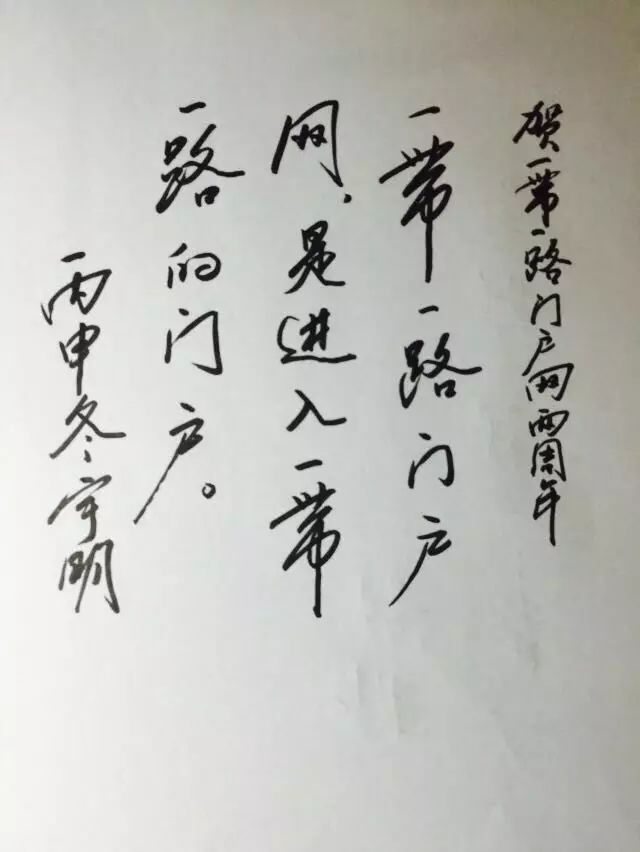 贺一带一路门户网两周年
一带一路门户
网、是进入一带
一路的门户。
丙申冬宇明